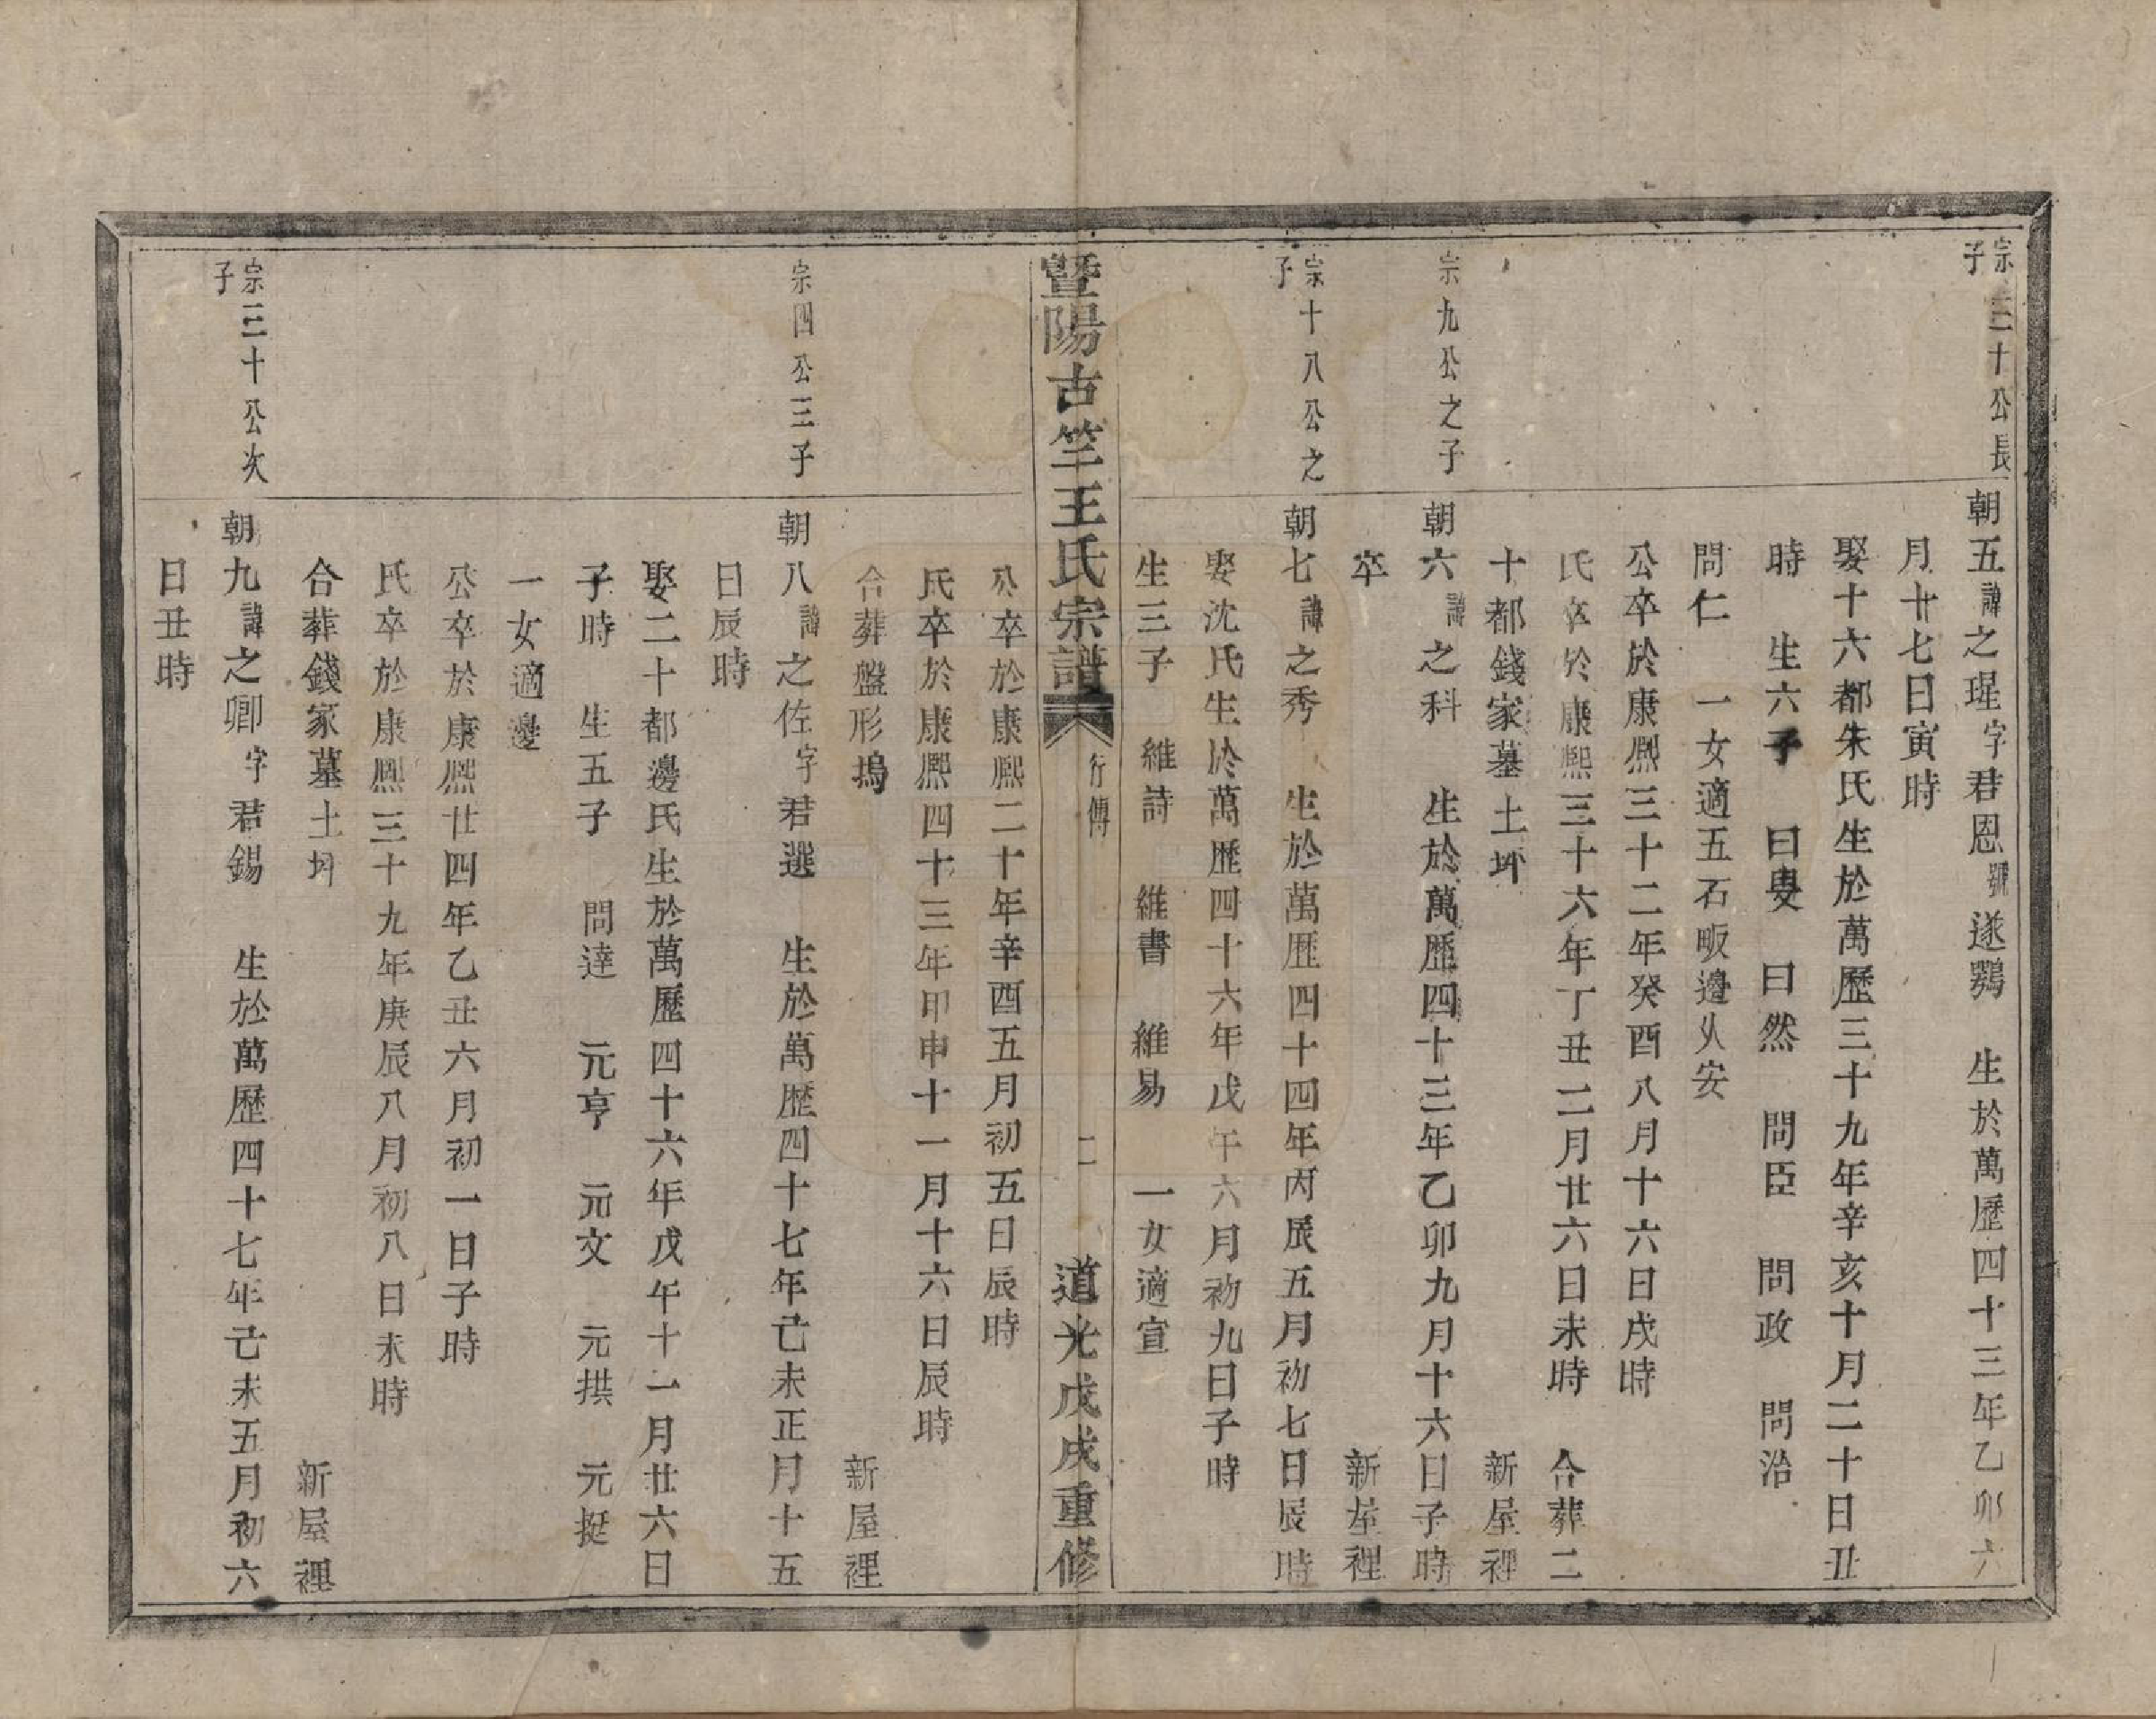 宗三十公長
子
朝五諱之瑆字君恩號遂鶚　生於萬歷四十三年乙卯六
月廿七日寅時
娶十六都朱氏生於萬歷三十九年辛亥十月二十日丑
時　生六子　曰旻　曰然　問臣　問政　問治
問仁　一女適五石畈邊乆安
公卒於康熙三十二年癸酉八月十六日戌時
氏卒於康熙三十六年丁丑二月廿六日未時　合葬二
十都錢家墓土坪　新屋裡
宗九公之子
朝六諱之科　生於萬歷四十三年乙卯九月十六日子時
卒　新屋裡
宗十八公之
子
朝七諱之秀　生於萬歷四十四年丙辰五月初七日辰時
娶沈氏生於萬歷四十六年戊午六月初九日子時
生三子　維詩　維書　維易　一女適宣
暨陽古竺王氏宗譜　行傳　二　道光戊戌重修
公卒於康熙二十年辛酉五月初五日辰時
氏卒於康熙四十三年甲申十一月十六日辰時
合葬盤形塢　新屋裡
宗四公三子
朝八諱之佐字君選　生於萬歷四十七年己未正月十五
日辰時
娶二十都邊氏生於萬歷四十六年戊午十一月廿六日
子時　生五子　問達　元亨　元文　元拱　元挺
一女適邊
公卒於康熙廿四年乙丑六月初一日子時
氏卒於康熙三十九年庚辰八月初八日未時
合葬錢家墓土坪　新屋裡
宗三十公次
子
朝九諱之卿字君錫　生於萬歷四十七年己未五月初六
日丑時